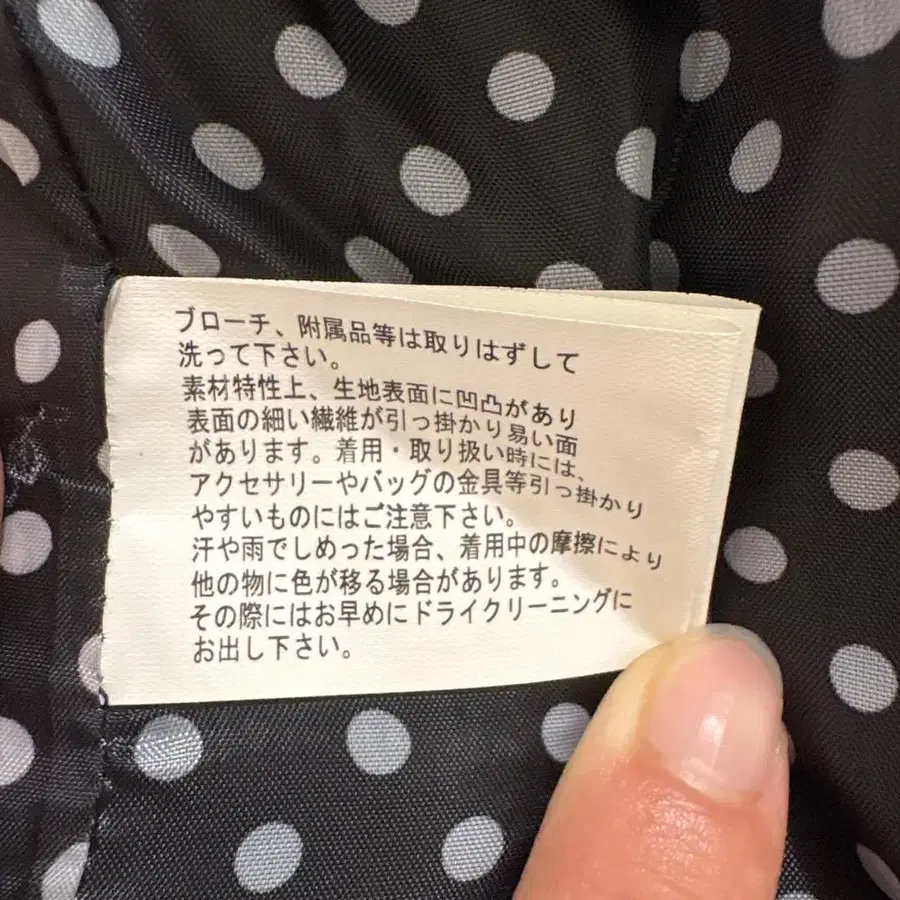 ブローチ、附属品等は取りはずして
洗って下さい。
素材特性上、生地表面に凹凸があり
表面の細い繊維が引っ掛かり易い面
があります。着用・取り扱い時には、
アクセサリーやバッグの金具等引っ掛かり
やすいものにはご注意下さい。
汗や雨でしめった場合、着用中の摩擦により
他の物に色が移る場合があります。
その際にはお早めにドライクリーニングに
お出し下さい。